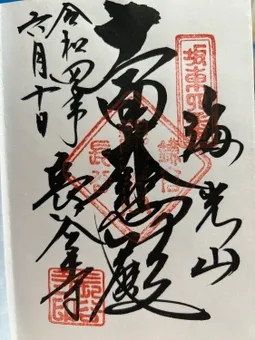 坂東四番
海光山
十一面大悲殿
長谷寺
令和四年
六月十日